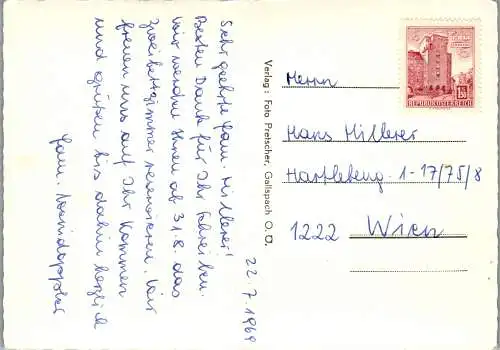 22.7.1969
Sehr geehrte Fam. Hillerer!
Besten Dank für Ihr Schreiben.
Wir werden Ihnen ab 31.8. das
Zweibettzimmer reservieren. Wir
freuen uns auf Ihr Kommen
und grüßen bis dahin herzlich
Fam.
Verlag: Foto Pretscher, Gallspach O. Ö.
1.50
REPUBLIK ÖSTERREICH
Herrn
Hans Hillerer
1-17/75/8
1222 Wien